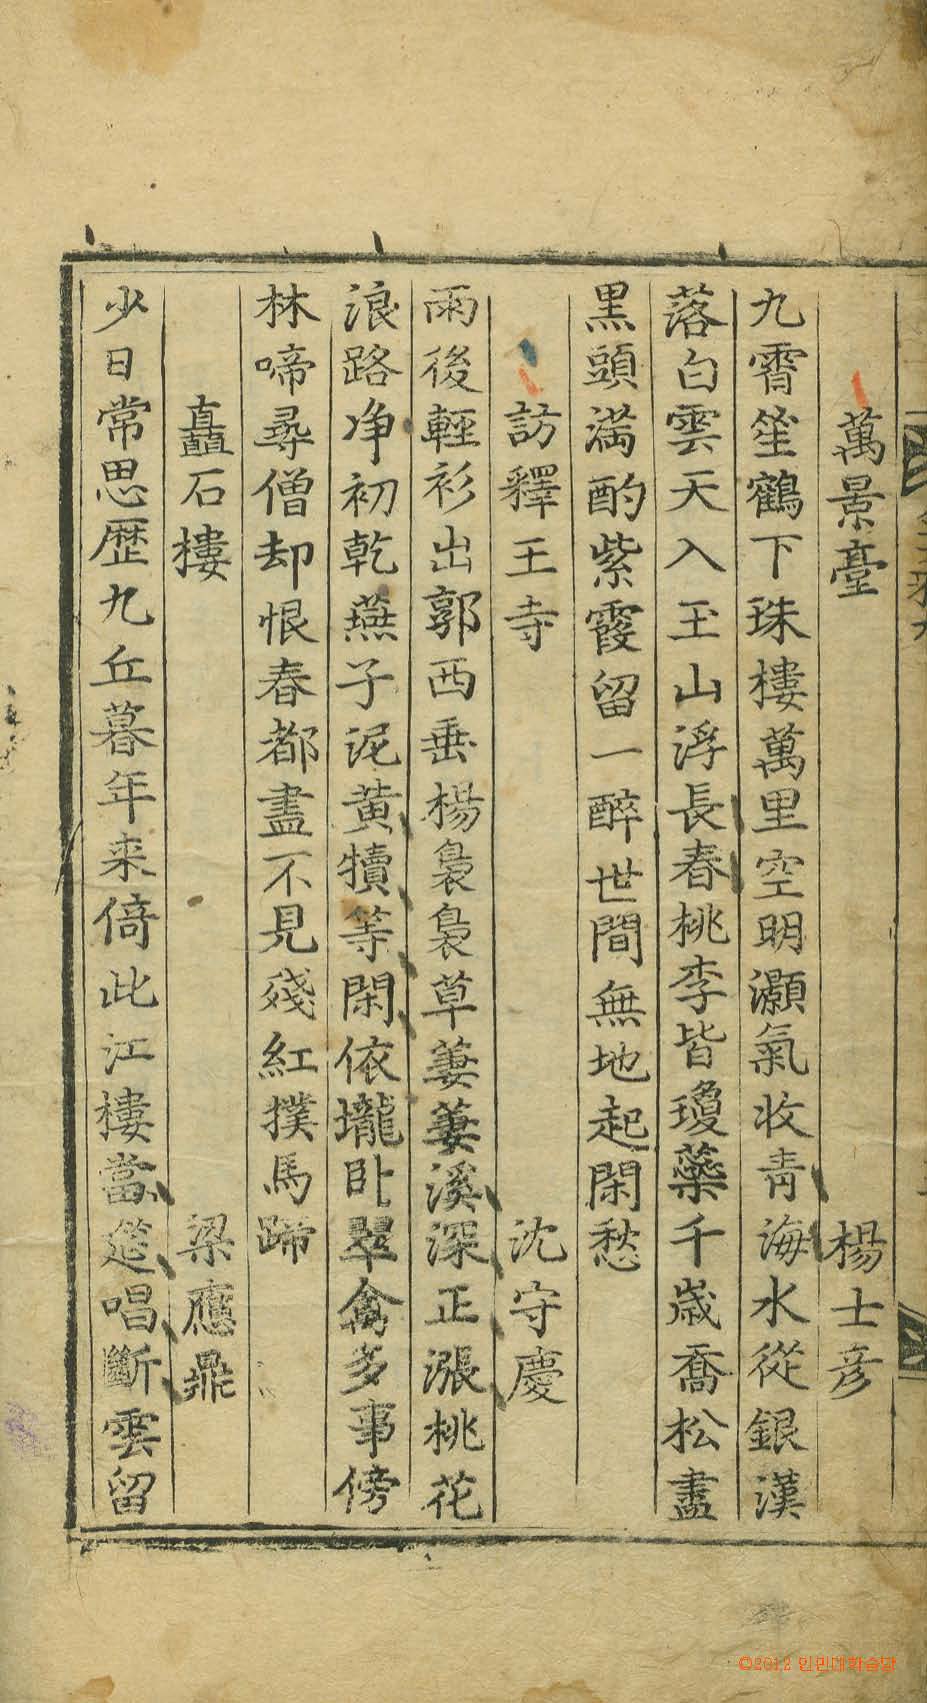 萬景臺 楊士彦
九霄笙鶴下珠樓萬里空明灝氣收青海水從銀漢
落白雲天入玉山浮長春桃李皆瓊蘂千歲喬松盡
黒頭滿酌紫霞留一醉世間無地起閑愁
訪釋王寺 沈守慶
雨後輕衫出郭西垂楊裊裊草萋萋溪深正漲桃花
浪路净初乾燕子泥黃犢等閑依壠卧翠禽多事傍
林啼尋僧却恨春都盡不見殘紅撲馬蹄
矗石樓 梁應鼎
少日常思歷九丘暮年来倚此江樓當筵唱斷雲留
©2012 인민대학습당